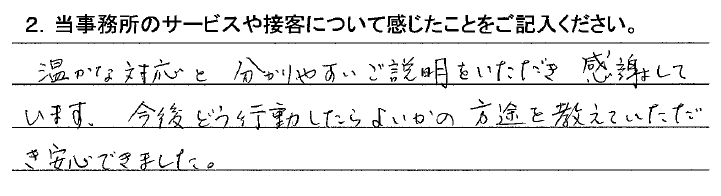 2. 当事務所のサービスや接客について感じたことをご記入ください。
温かな対応と 分かりやすいご説明をいただき 感謝して
います、今後どう行動したらよいかの 方途を教えていただ
き安心できました。